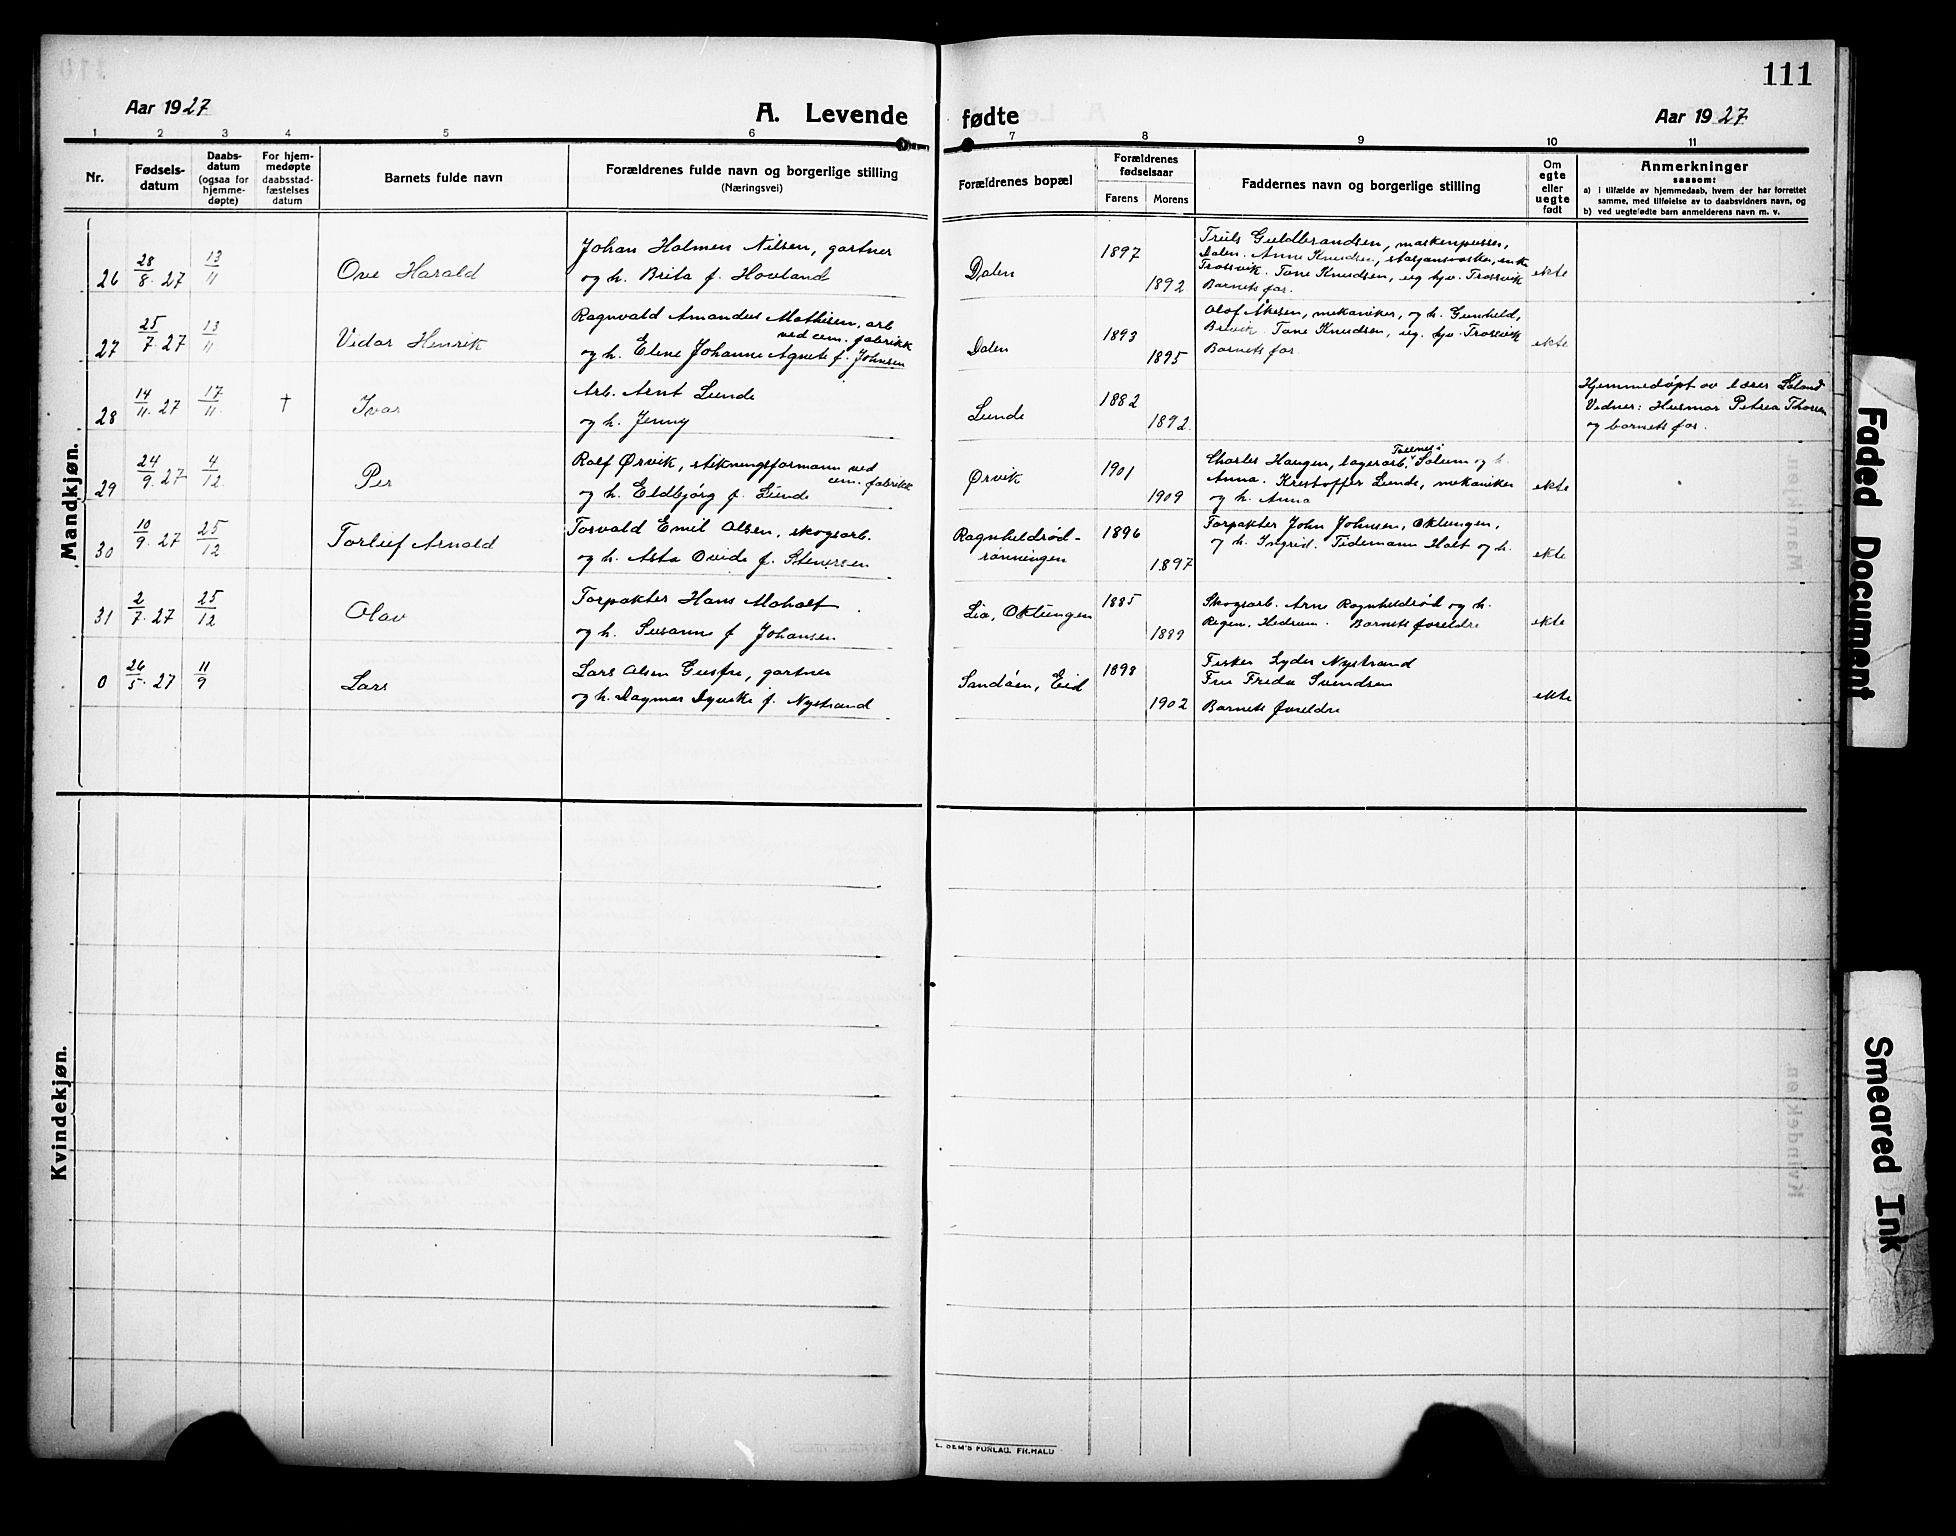 111
Aar 1927
A. Levende
fødte
Aar 1927
1 2 3 4 5 6 7 8 9 10 11
Nr.
Fødsels-
datum
Daabs-
datum
(ogsaa for
hjemme-
døpte)
For hjem-
medøpte
daabsstad-
fæstelses
datum
Barnets fulde navn
Forældrenes fulde navn og borgerlige stilling
(Næringsvei)
Forældrenes bopæl
Forældrenes
fødselsaar
Farens Morens
Faddernes navn og borgerlige stilling
Om
egte
eller
uegte
født
Anmerkninger
saasom:
a) i tilfælde av hjemmedaab, hvem der har forrettet
samme, med tilføielse av to daabsvidners navn, og
b) ved uegtefødte barn anmelderens navn m. v.
Mandkjøn.
26 28/8. 27 13/11 Ove Harald
Johan Holmen Nilsen, gartner
og h. Brita f. Hovland
Dalen 1897 1892
Truls Guldbrandsen, maskenpusser,
Dalen. Anne Knudsen,
Trosvik. Tone Knudsen, ug. hjv. Trosvik
Barnets far.
ekte
27 25/7. 27 13/11 Vidar Henrik
Ragnvald Amandus Mathisen, arb
ved cem. fabrikk
og h. Eline Johanne Agnete f. Johnsen
Dalen 1893 1895
Olof Åkesen, mekaniker, og h. Gunhild,
Brevik. Tone Knudsen, ug. hjv. Trosvik
Barnets far
ekte
28 14/11. 27 17/11 † Ivar
Arb. Arnt Lunde
og h. Jenny
Lunde 1882 1892.
Hjemmedøpt av lærer
Vidner: Husmor Petrea Thorsen
og barnets far.
29 24/9. 27 4/12 Per
Rolf Ørvik, stikningsformann ved
cem. fabrikk
og h. Eldbjørg f. Lunde
Ørvik 1901 1909
Charles Haugen, lagerarb. Solum og h.
Anna. Kristoffer Lunde, mekaniker
og h. Anna
ekte
30 10/9. 27 25/12 Torleif Arnold
Torvald Emil Olsen, skogsarb.
og h. Asta Ovide f. Stenersen
Ragnhildrød-
rønningen 1896 1897
Forpakter John Johnsen, Oklungen,
og h. Ingrid. Tidemann Holt og h.
ekte
31 2/7. 27 25/12 Olav
Forpakter Hans Moholt
og h. Susanne f Johansen
Lia, Oklungen 1885 1889
Skogsarb. Arne Ragnhildrød og h.
Hedrum. Barnets foreldre
ekte
0 26/5. 27 11/9 Lars
Lars Olsen Gusfre, gartner
og h. Dagmar Dyveke f. Nystrand
Sandåen, Eid 1898 1902
Fisker Lyder Nystrand
Fru Frida Svendsen
Barnets foreldre
ekte
Kvindekjøn.
E. SEM'S FORLAG. FR.HALD
Faded Document
Smeared Ink